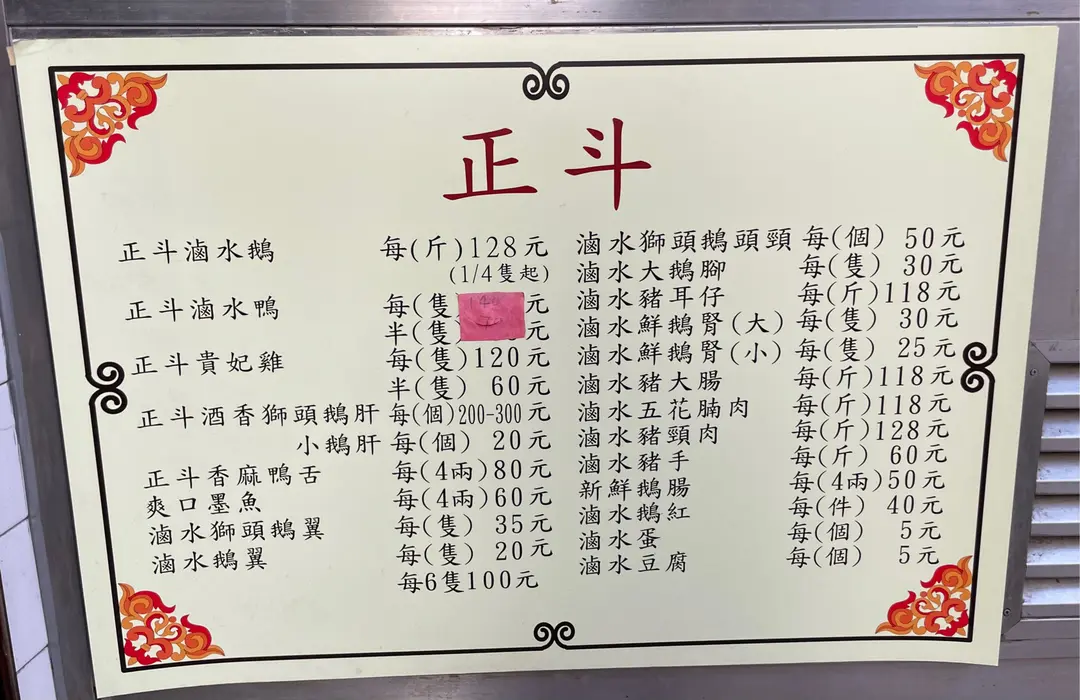 正斗
正斗滷水鵝 每(斤)128元
(1/4隻起)
正斗滷水鴨 每(隻 元
半(隻 元
正斗貴妃雞 每(隻)120元
半(隻) 60元
正斗酒香獅頭鵝肝 每(個)200-300元
小鵝肝 每(個) 20元
正斗香麻鴨舌 每(4兩)80元
爽口墨魚 每(4兩)60元
滷水獅頭鵝翼 每(隻) 35元
滷水鵝翼 每(隻) 20元
每6隻100元
滷水獅頭鵝頭頸 每(個) 50元
滷水大鵝腳 每(隻) 30元
滷水豬耳仔 每(斤)118元
滷水鮮鵝腎(大) 每(隻) 30元
滷水鮮鵝腎(小) 每(隻) 25元
滷水豬大腸 每(斤)118元
滷水五花腩肉 每(斤)118元
滷水豬頸肉 每(斤)128元
滷水豬手 每(斤) 60元
新鮮鵝腸 每(4兩)50元
滷水鵝紅 每(件) 40元
滷水蛋 每(個) 5元
滷水豆腐 每(個) 5元